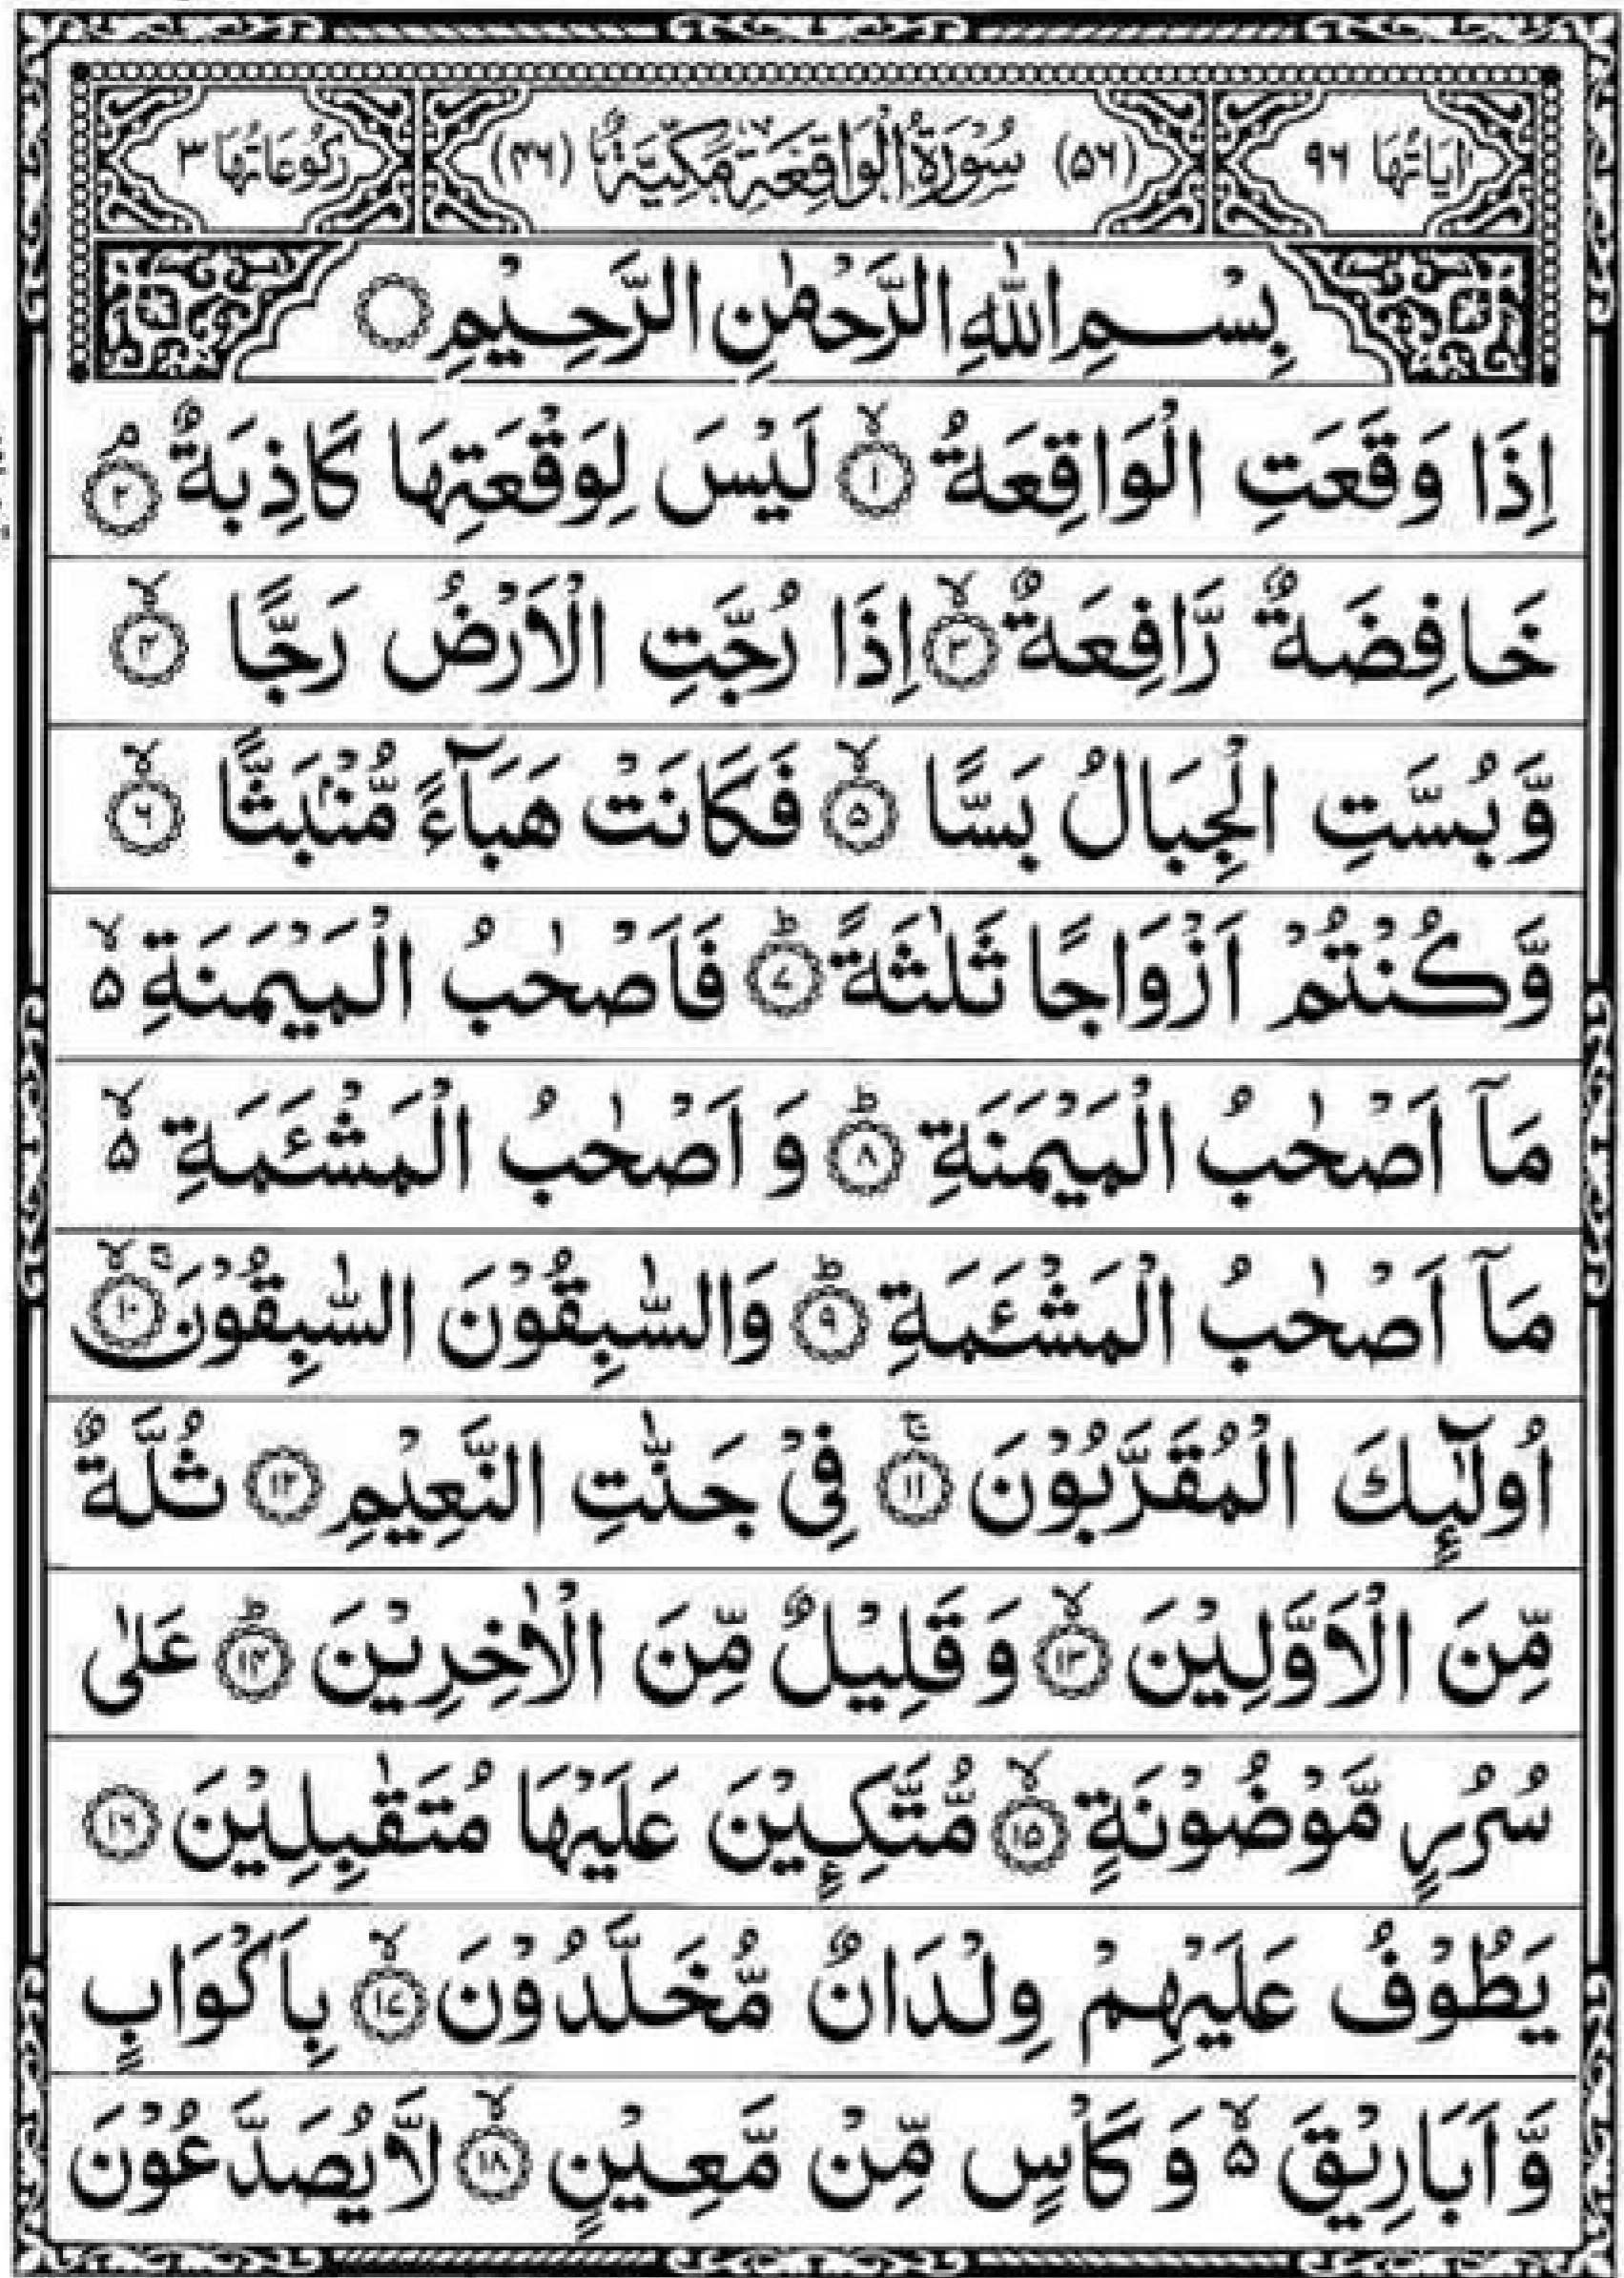 اٰيَاتُهَا ٩٦ (٥٦) سُوْرَةُ الْوَاقِعَةِ مَكِّيَّةٌ (٤٦) رُكُوْعَاتُهَا ٣
بِسْمِ اللّٰهِ الرَّحْمٰنِ الرَّحِيْمِ ۝
اِذَا وَقَعَتِ الْوَاقِعَةُ ۙ﴿۱﴾ لَيْسَ لِوَقْعَتِهَا كَاذِبَةٌ ۘ﴿۲﴾
خَافِضَةٌ رَّافِعَةٌ ۙ﴿۳﴾ اِذَا رُجَّتِ الْاَرْضُ رَجًّا ۙ﴿۴﴾
وَّبُسَّتِ الْجِبَالُ بَسًّا ۙ﴿۵﴾ فَكَانَتْ هَبَآءً مُّنْۢبَثًّا ۙ﴿۶﴾
وَّكُنْتُمْ اَزْوَاجًا ثَلٰثَةً ؕ﴿۷﴾ فَاَصْحٰبُ الْمَيْمَنَةِ ۙ۵
مَآ اَصْحٰبُ الْمَيْمَنَةِ ؕ﴿۸﴾ وَ اَصْحٰبُ الْمَشْـَٔمَةِ ۙ۵
مَآ اَصْحٰبُ الْمَشْـَٔمَةِ ؕ﴿۹﴾ وَالسّٰبِقُوْنَ السّٰبِقُوْنَ ۚۙ﴿۱۰﴾
اُولٰٓئِكَ الْمُقَرَّبُوْنَ ۚ﴿۱۱﴾ فِيْ جَنّٰتِ النَّعِيْمِ ﴿۱۲﴾ ثُلَّةٌ
مِّنَ الْاَوَّلِيْنَ ۙ﴿۱۳﴾ وَ قَلِيْلٌ مِّنَ الْاٰخِرِيْنَ ؕ﴿۱۴﴾ عَلٰى
سُرُرٍ مَّوْضُوْنَةٍ ۙ﴿۱۵﴾ مُّتَّكِـِٕيْنَ عَلَيْهَا مُتَقٰبِلِيْنَ ﴿۱۶﴾
يَطُوْفُ عَلَيْهِمْ وِلْدَانٌ مُّخَلَّدُوْنَ ۙ﴿۱۷﴾ بِاَكْوَابٍ
وَّ اَبَارِيْقَ ۙ۵ وَ كَاْسٍ مِّنْ مَّعِيْنٍ ۙ﴿۱۸﴾ لَّا يُصَدَّعُوْنَ